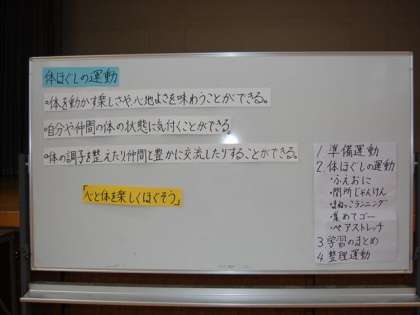 体ほぐしの運動
○体を動かす楽しさや、心地よさを味わうことができる。
○自分や仲間の体の状態に気付くことができる。
○体の調子を整えたり仲間と豊かに交流したりすることができる。
「心と体を楽しくほぐそう」
1 準備運動
2 体ほぐしの運動
・ふえおに
・関所じゃんけん
・まねっこランニング
・集めてゴー
・ペアストレッチ
3 学習のまとめ
4 整理運動